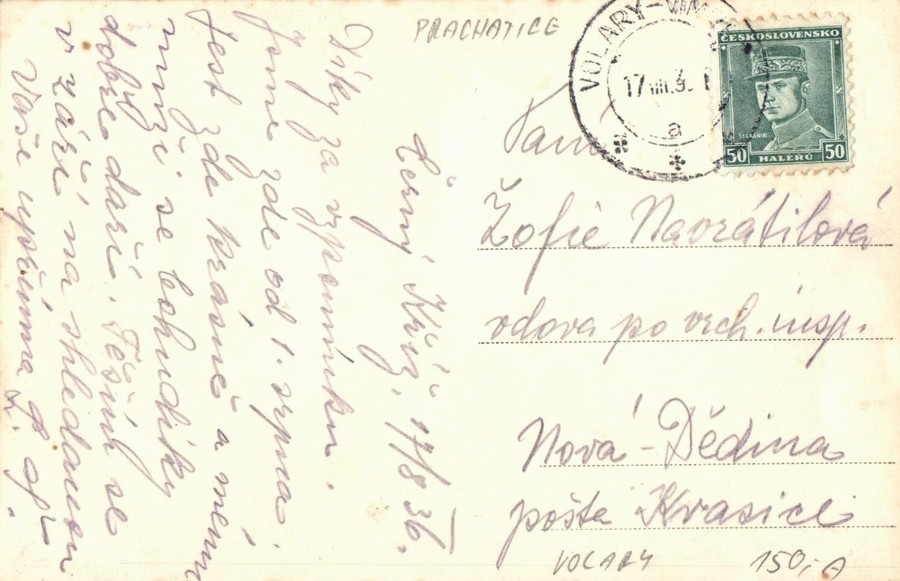 PRACHATICE
VOLARY-VIM
17.VIII.3
a
ČESKOSLOVENSKO
ŠTEFÁNIK
50 HALÉŘŮ 50
Černý Kříž, 17/8 36.
Díky za vzpomínku.
Jsme zde od 1. srpna.
Jest zde krásně a mému
muži se bohudíky
dobře daří. Těším se
v září na shledanou
Vaše upřímná
Paní
Žofie Navrátilová
vdova po vrch. insp.
Nová-Dědina
pošta Kvasice
VOLARY
150,- A